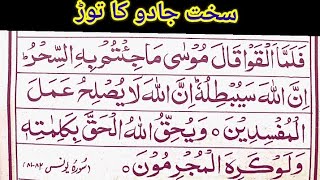 سخت جادو کا توڑ
فَلَمَّآ اَلْقَوْا قَالَ مُوْسٰى مَا جِئْتُمْ بِهِ السِّحْرُ
اِنَّ اللّٰهَ سَيُبْطِلُهٗ اِنَّ اللّٰهَ لَا يُصْلِحُ عَمَلَ
الْمُفْسِدِيْنَ ○ وَيُحِقُّ اللّٰهُ الْحَقَّ بِكَلِمٰتِهٖ
وَلَوْ كَرِهَ الْمُجْرِمُوْنَ ○ (سورۃ یونس ۸۲-۸۱)